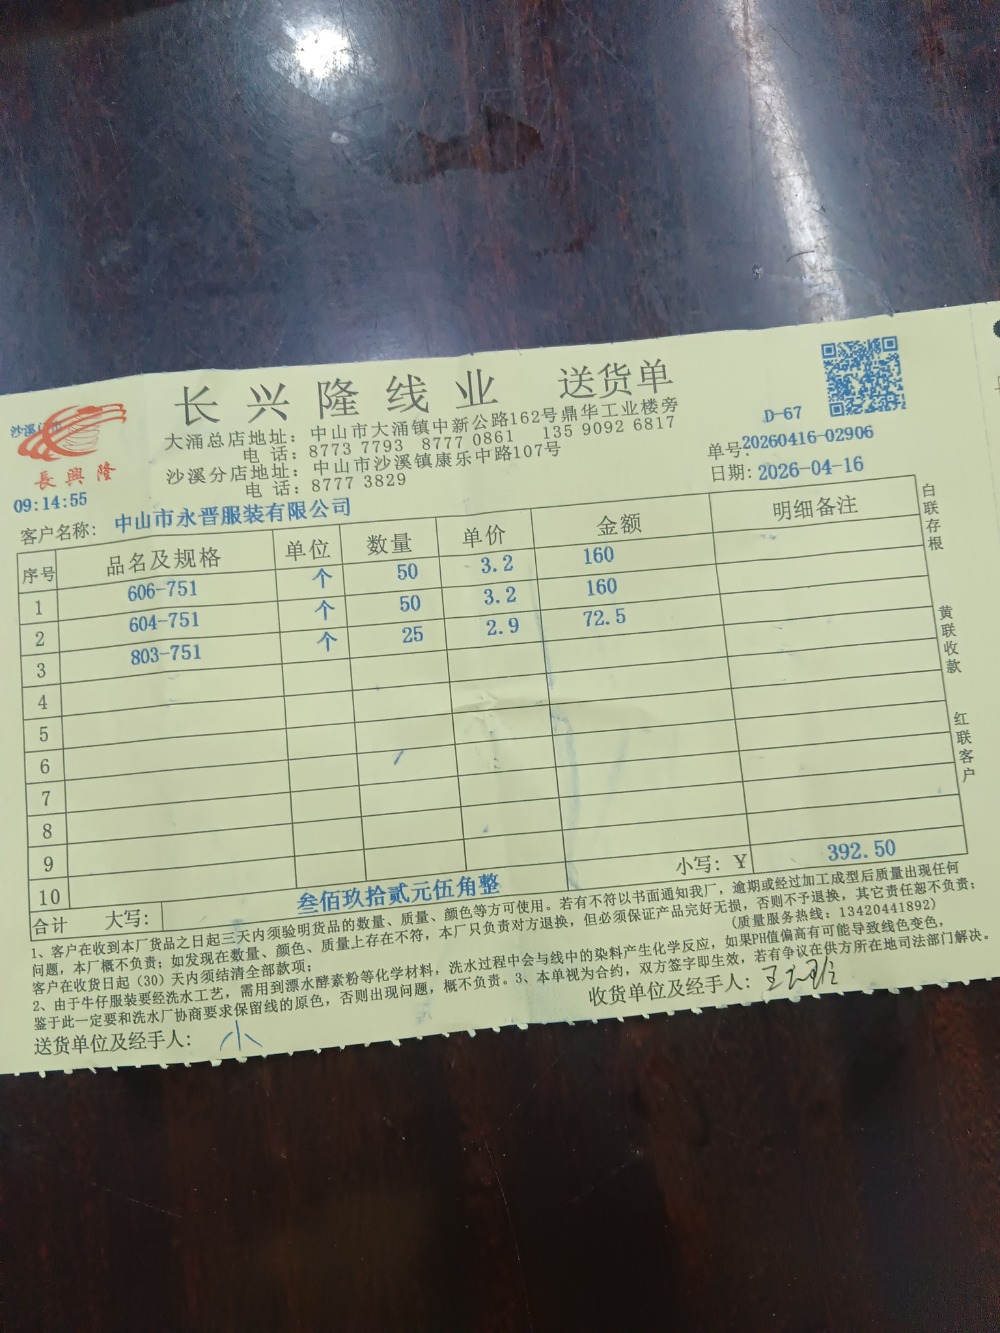 长兴隆线业 送货单
大涌总店地址：中山市大涌镇中新公路162号鼎华工业楼旁
电 话：8773 7793 8777 0861 135 9092 6817
沙溪分店地址：中山市沙溪镇康乐中路107号
电 话：8777 3829
長興隆
09:14:55
D-67
单号:20260416-02906
日期: 2026-04-16
客户名称: 中山市永晋服装有限公司
序号 品名及规格 单位 数量 单价 金额 明细备注
1 606-751 个 50 3.2 160
2 604-751 个 50 3.2 160
3 803-751 个 25 2.9 72.5
4
5
6
7
8
9
10
合计 大写: 叁佰玖拾贰元伍角整 小写: ¥ 392.50
白联存根
黄联收款
红联客户
1、客户在收到本厂货品之日起三天内须验明货品的数量、质量、颜色等方可使用。若有不符以书面通知我厂，逾期或经过加工成型后质量出现任何
问题，本厂概不负责；如发现在数量、颜色、质量上存在不符，本厂只负责对方退换，但必须保证产品完好无损，否则不予退换，其它责任恕不负责；
客户在收货日起（30）天内须结清全部款项； （质量服务热线：13420441892）
2、由于牛仔服装要经洗水工艺，需用到漂水酵素粉等化学材料，洗水过程中会与线中的染料产生化学反应，如果PH值偏高有可能导致线色变色，
鉴于此一定要和洗水厂协商要求保留线的原色，否则出现问题，概不负责。3、本单视为合约，双方签字即生效，若有争议在供方所在地司法部门解决。
送货单位及经手人: 小
收货单位及经手人: